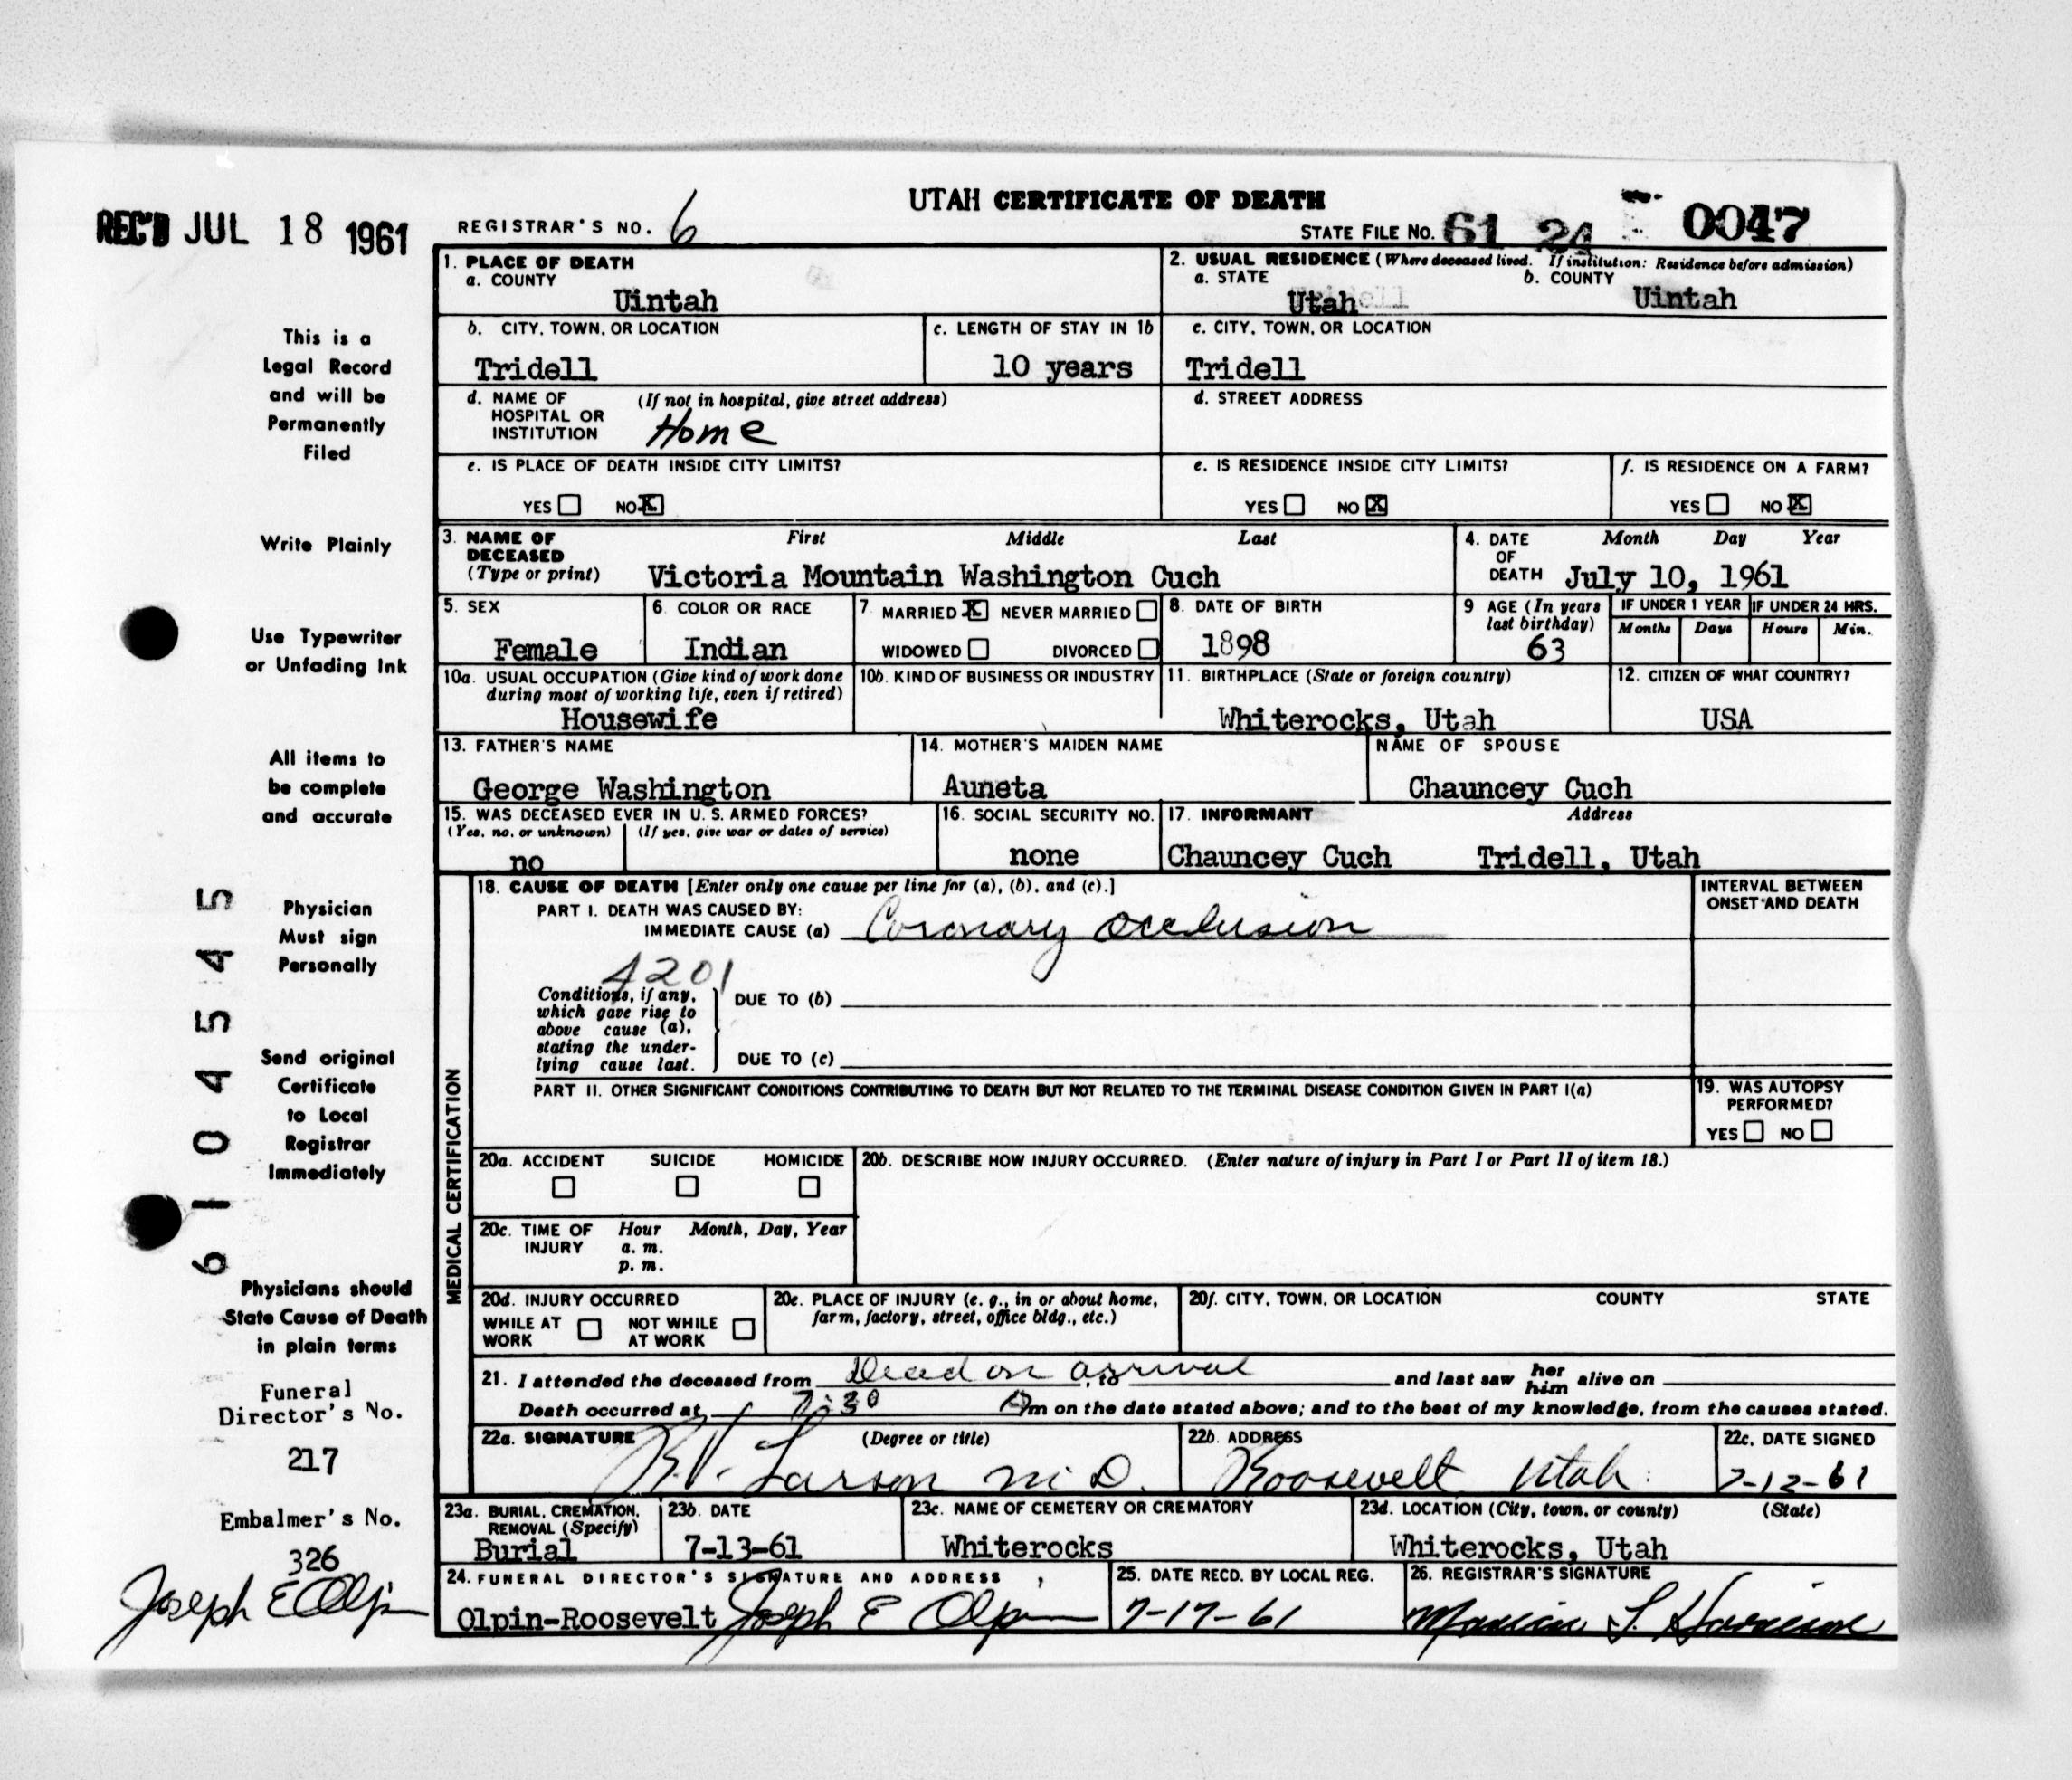 UTAH CERTIFICATE OF DEATH
REC'D JUL 18 1961
REGISTRAR'S NO. 6
STATE FILE No. 61 24 0047
1. PLACE OF DEATH
a. COUNTY
Uintah
2. USUAL RESIDENCE (Where deceased lived. If institution: Residence before admission)
a. STATE b. COUNTY
Utah Uintah
b. CITY, TOWN, OR LOCATION
Tridell
c. LENGTH OF STAY IN 1b
10 years
c. CITY, TOWN, OR LOCATION
Tridell
d. NAME OF HOSPITAL OR INSTITUTION (If not in hospital, give street address)
Home
d. STREET ADDRESS
e. IS PLACE OF DEATH INSIDE CITY LIMITS?
YES NO X
e. IS RESIDENCE INSIDE CITY LIMITS?
YES NO X
f. IS RESIDENCE ON A FARM?
YES NO X
3. NAME OF DECEASED (Type or print) First Middle Last
Victoria Mountain Washington Cuch
4. DATE OF DEATH Month Day Year
July 10, 1961
5. SEX
Female
6. COLOR OR RACE
Indian
7 MARRIED X NEVER MARRIED
WIDOWED DIVORCED
8. DATE OF BIRTH
1898
9 AGE (In years last birthday)
63
IF UNDER 1 YEAR IF UNDER 24 HRS.
Months Days Hours Min.
10a. USUAL OCCUPATION (Give kind of work done during most of working life, even if retired)
Housewife
10b. KIND OF BUSINESS OR INDUSTRY
11. BIRTHPLACE (State or foreign country)
Whiterocks, Utah
12. CITIZEN OF WHAT COUNTRY?
USA
13. FATHER'S NAME
George Washington
14. MOTHER'S MAIDEN NAME
Auneta
NAME OF SPOUSE
Chauncey Cuch
15. WAS DECEASED EVER IN U.S. ARMED FORCES?
(Yes, no, or unknown) (If yes, give war or dates of service)
no
16. SOCIAL SECURITY NO.
none
17. INFORMANT Address
Chauncey Cuch Tridell, Utah
MEDICAL CERTIFICATION
18. CAUSE OF DEATH [Enter only one cause per line for (a), (b), and (c).]
INTERVAL BETWEEN ONSET AND DEATH
PART I. DEATH WAS CAUSED BY:
IMMEDIATE CAUSE (a) Coronary occlusion
4201
Conditions, if any, which gave rise to above cause (a), stating the underlying cause last.
DUE TO (b)
DUE TO (c)
PART II. OTHER SIGNIFICANT CONDITIONS CONTRIBUTING TO DEATH BUT NOT RELATED TO THE TERMINAL DISEASE CONDITION GIVEN IN PART I(a)
19. WAS AUTOPSY PERFORMED?
YES NO
20a. ACCIDENT SUICIDE HOMICIDE
20b. DESCRIBE HOW INJURY OCCURRED. (Enter nature of injury in Part I or Part II of item 18.)
20c. TIME OF INJURY Hour Month, Day, Year
a. m.
p. m.
20d. INJURY OCCURRED
WHILE AT WORK NOT WHILE AT WORK
20e. PLACE OF INJURY (e. g., in or about home, farm, factory, street, office bldg., etc.)
20f. CITY, TOWN, OR LOCATION COUNTY STATE
21. I attended the deceased from Dead on arrival, to and last saw her him alive on
Death occurred at 7:30 m on the date stated above; and to the best of my knowledge, from the causes stated.
22a. SIGNATURE (Degree or title)
R.V. Larson M.D.
22b. ADDRESS
Roosevelt Utah
22c. DATE SIGNED
7-12-61
23a. BURIAL, CREMATION, REMOVAL (Specify)
Burial
23b. DATE
7-13-61
23c. NAME OF CEMETERY OR CREMATORY
Whiterocks
23d. LOCATION (City, town, or county) (State)
Whiterocks, Utah
24. FUNERAL DIRECTOR'S SIGNATURE AND ADDRESS
Olpin-Roosevelt Joseph E Olpin
25. DATE RECD. BY LOCAL REG.
7-17-61
26. REGISTRAR'S SIGNATURE
This is a
Legal Record
and will be
Permanently
Filed
Write Plainly
Use Typewriter
or Unfading Ink
All items to
be complete
and accurate
Physician
Must sign
Personally
Send original
Certificate
to Local
Registrar
Immediately
Physicians should
State Cause of Death
in plain terms
Funeral
Director's No.
217
Embalmer's No.
326
Joseph E Olpin
6104545